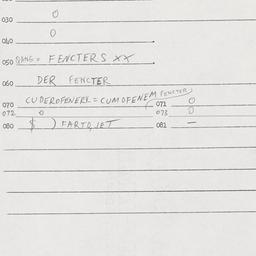 030 0
040 0
050 QANG = FENCTERS XX
060 DER FENCTER
070 CUDEROFENERK = CUMOFENEM FENCTER
071 0
072 0
073 0
080 $ ) FARTQJET
081 —